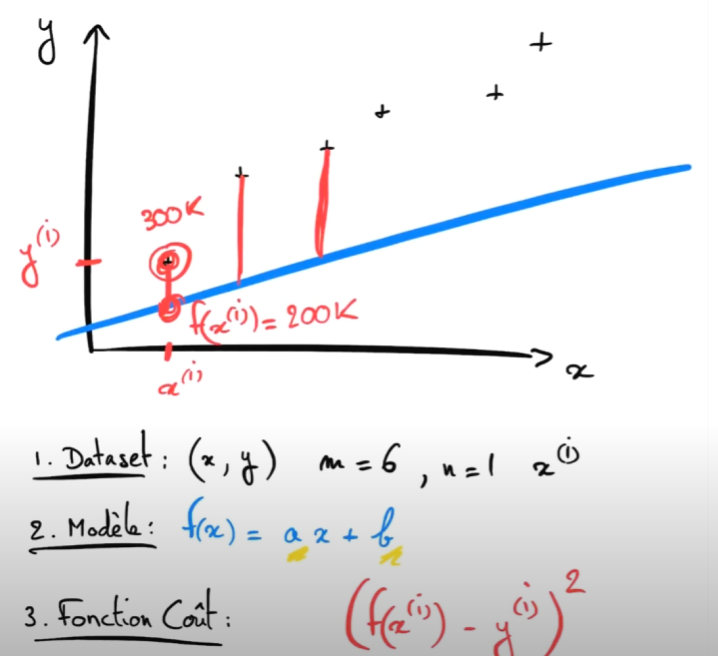 y
300K
y^(i)
f(x^(i)) = 200K
x^(i)
x
1. Dataset : (x, y) m = 6 , n = 1 x^(i)
2. Modèle : f(x) = a x + b
3. Fonction Coût : (f(x^(i)) - y^(i))^2